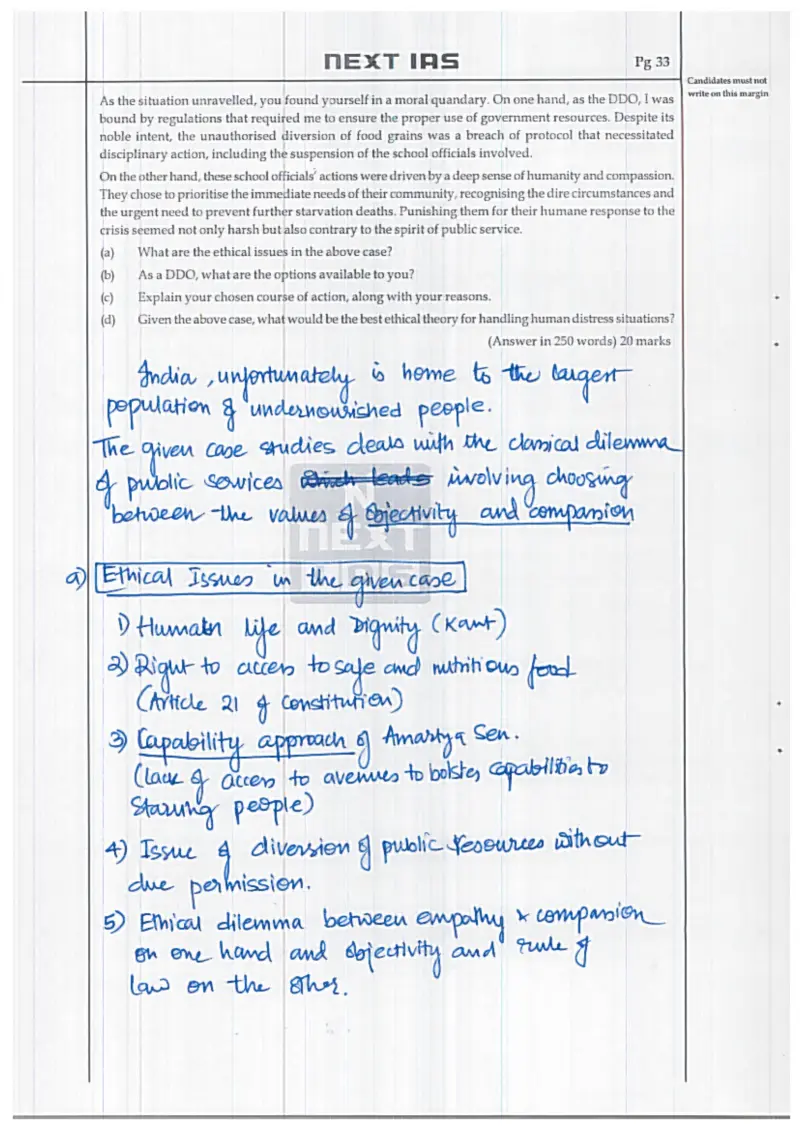 NEXT IAS
Pg 33
Candidates must not
write on this margin
As the situation unravelled, you found yourself in a moral quandary. On one hand, as the DDO, I was
bound by regulations that required me to ensure the proper use of government resources. Despite its
noble intent, the unauthorised diversion of food grains was a breach of protocol that necessitated
disciplinary action, including the suspension of the school officials involved.
On the other hand, these school officials' actions were driven by a deep sense of humanity and compassion.
They chose to prioritise the immediate needs of their community, recognising the dire circumstances and
the urgent need to prevent further starvation deaths. Punishing them for their humane response to the
crisis seemed not only harsh but also contrary to the spirit of public service.
(a) What are the ethical issues in the above case?
(b) As a DDO, what are the options available to you?
(c) Explain your chosen course of action, along with your reasons.
(d) Given the above case, what would be the best ethical theory for handling human distress situations?
(Answer in 250 words) 20 marks
India, unfortunately is home to the largest
population of undernourished people.
The given case studies deals with the classical dilemma
of public services which leads involving choosing
between the values of objectivity and compassion
NEXT IAS
a) Ethical Issues in the given case
1) Human life and Dignity (Kant)
2) Right to access to safe and nutritious food
(Article 21 of Constitution)
3) Capability approach of Amartya Sen.
(lack of access to avenues to bolster capabilities to
starving people)
4) Issue of diversion of public resources without
due permission.
5) Ethical dilemma between empathy & compassion
on one hand and objectivity and rule of
law on the other.